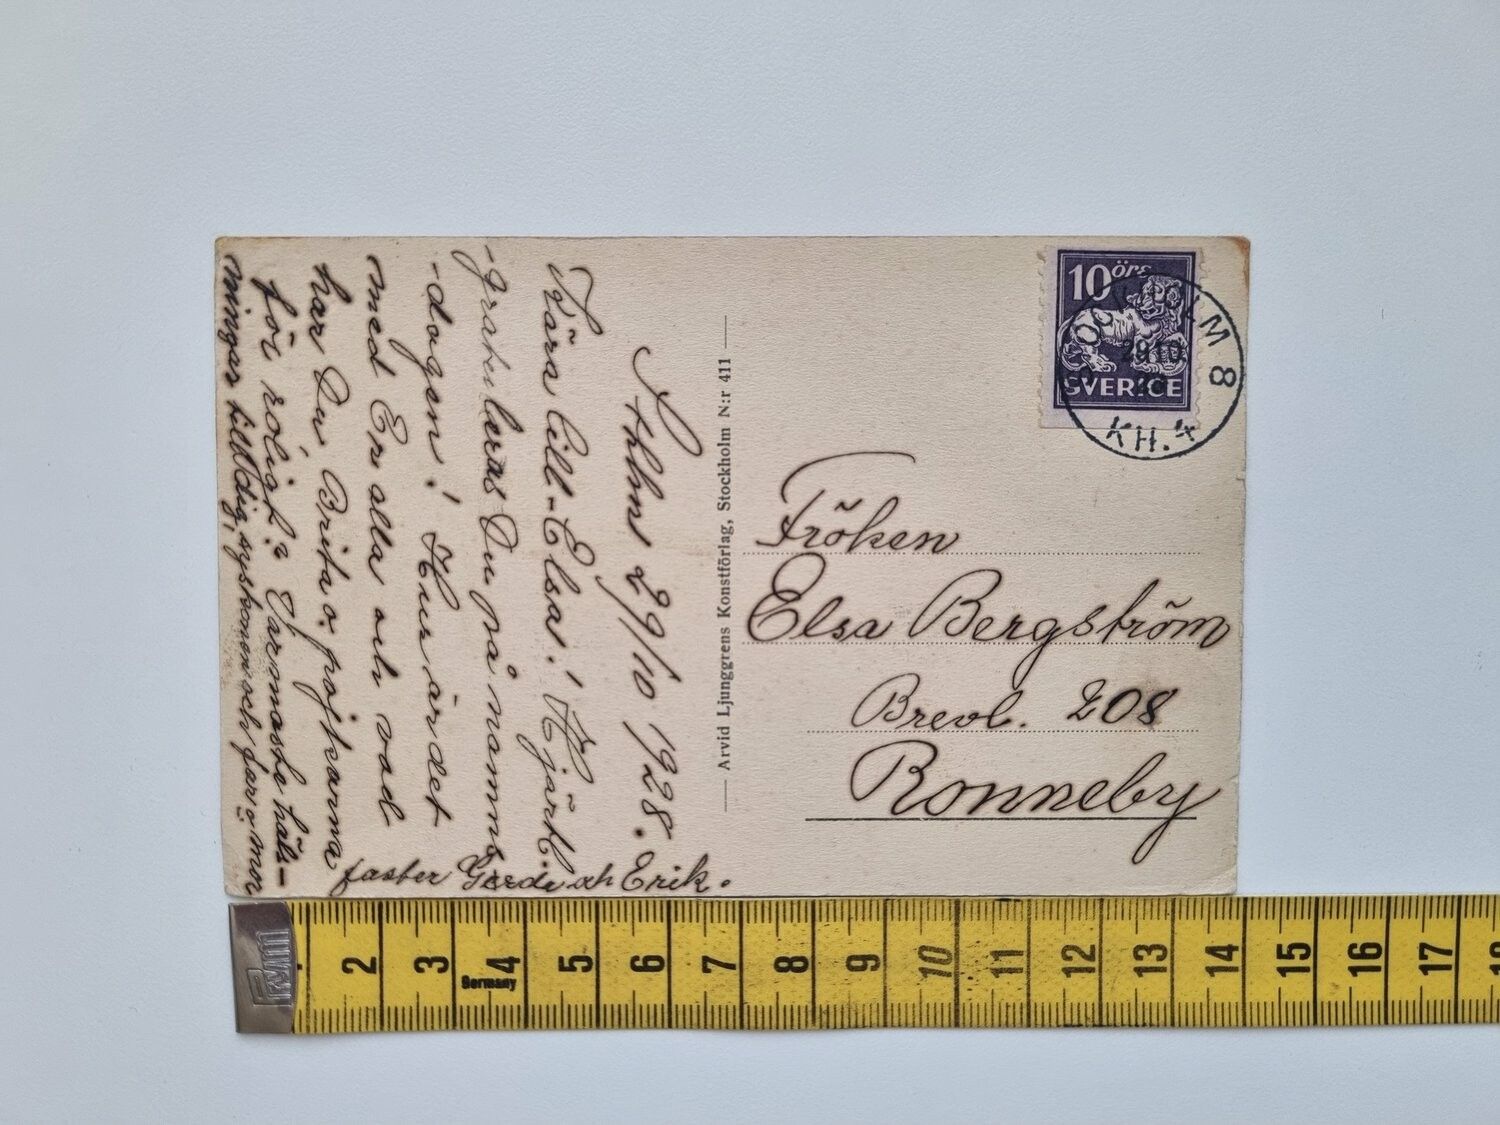 Sthlm 29/10 1928.
Kära lill-Elsa! Hjärtl.
-gratuleras Du på namns
-dagen! Hur är det
med Er alla och vad
har Du Brita o. pojkarna
för roligt? Varmaste häls-
ningar till dig, syskonen och far o. mor
faster Gerda och Erik.
Arvid Ljunggrens Konstförlag, Stockholm N:r 411
10 öre
SVERIGE
STOCKHOLM 8
29.10.
28
KH.4
Fröken
Elsa Bergström
Brevl. 208
Ronneby
PYM
Germany
2 3 4 5 6 7 8 9 10 11 12 13 14 15 16 17 18